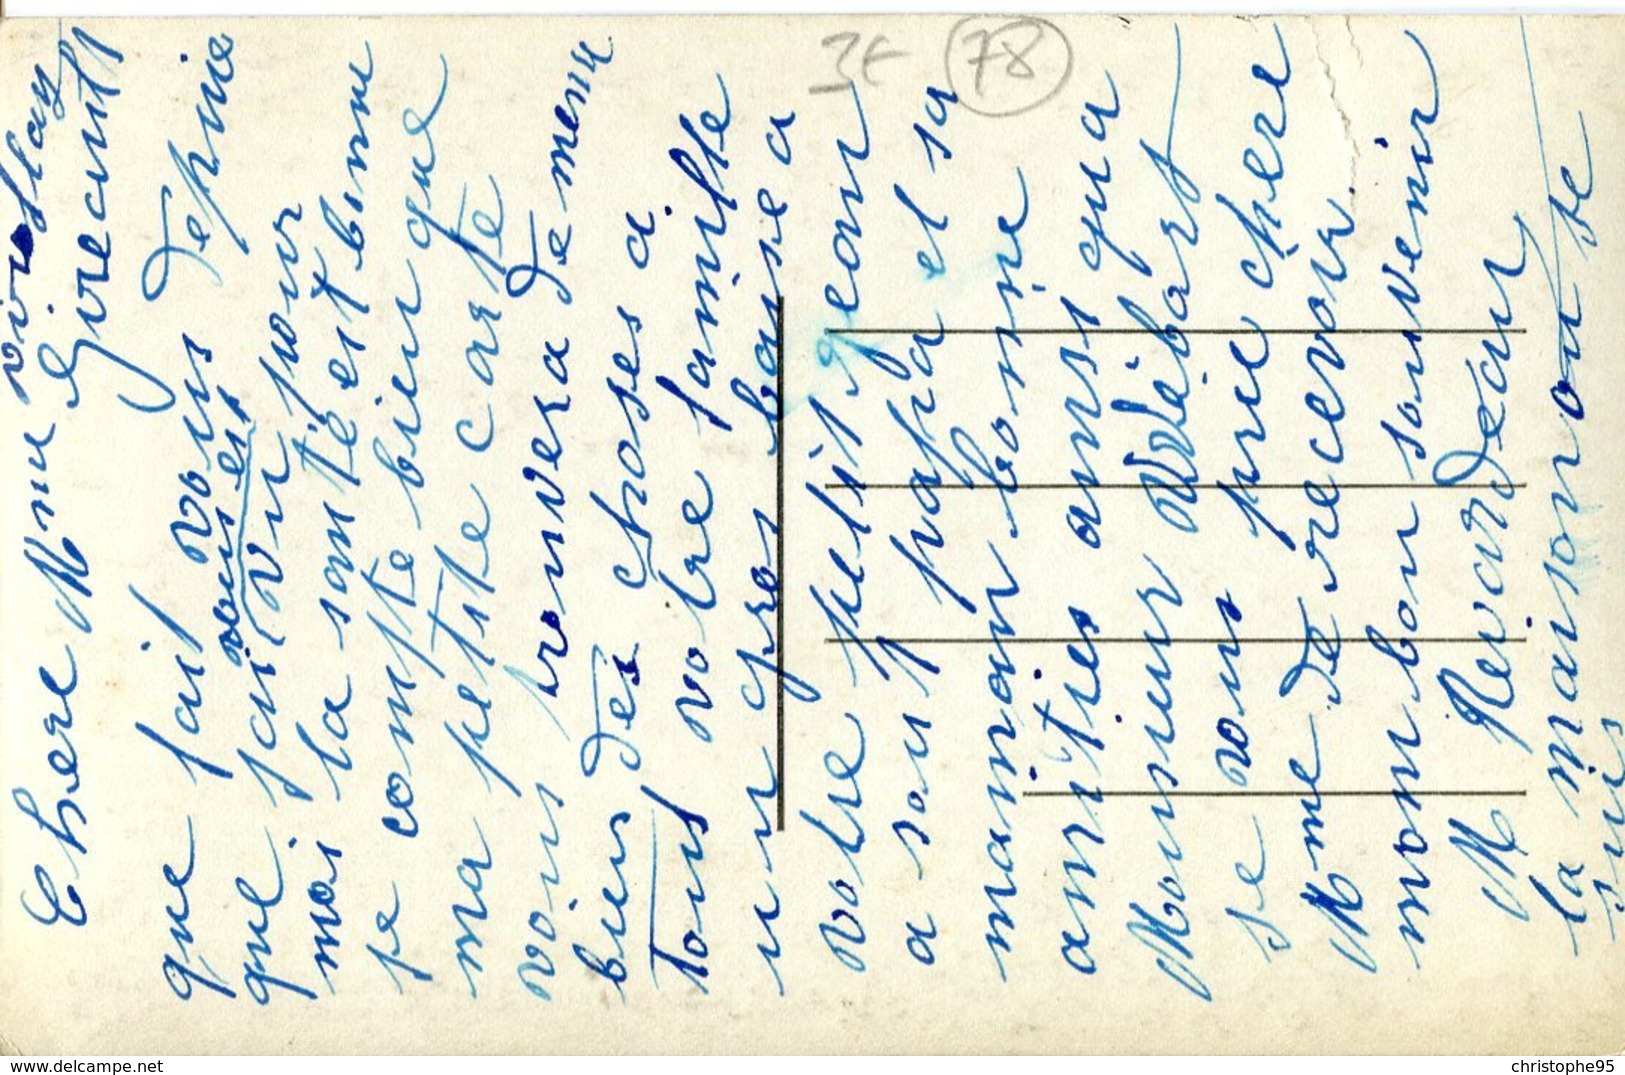 viroflay
Chere Mme Girecutt
que fait vous depuie
que fait vous est vu pour
moi la sante est bonne
je compte bien que
ma petite carte
vous trouvera de meme
bien des choses a
tous votre famille
un gros baise a
votre petit jean
a sont papa et sa
maman bonne
amities ausi qua
Monsieur Wibart
se vous prie chere
Mme de recevoir
mom bon souvenir
M Revardeau
la maison ou se
suis
3€ 78
delcampe.net
christophe95